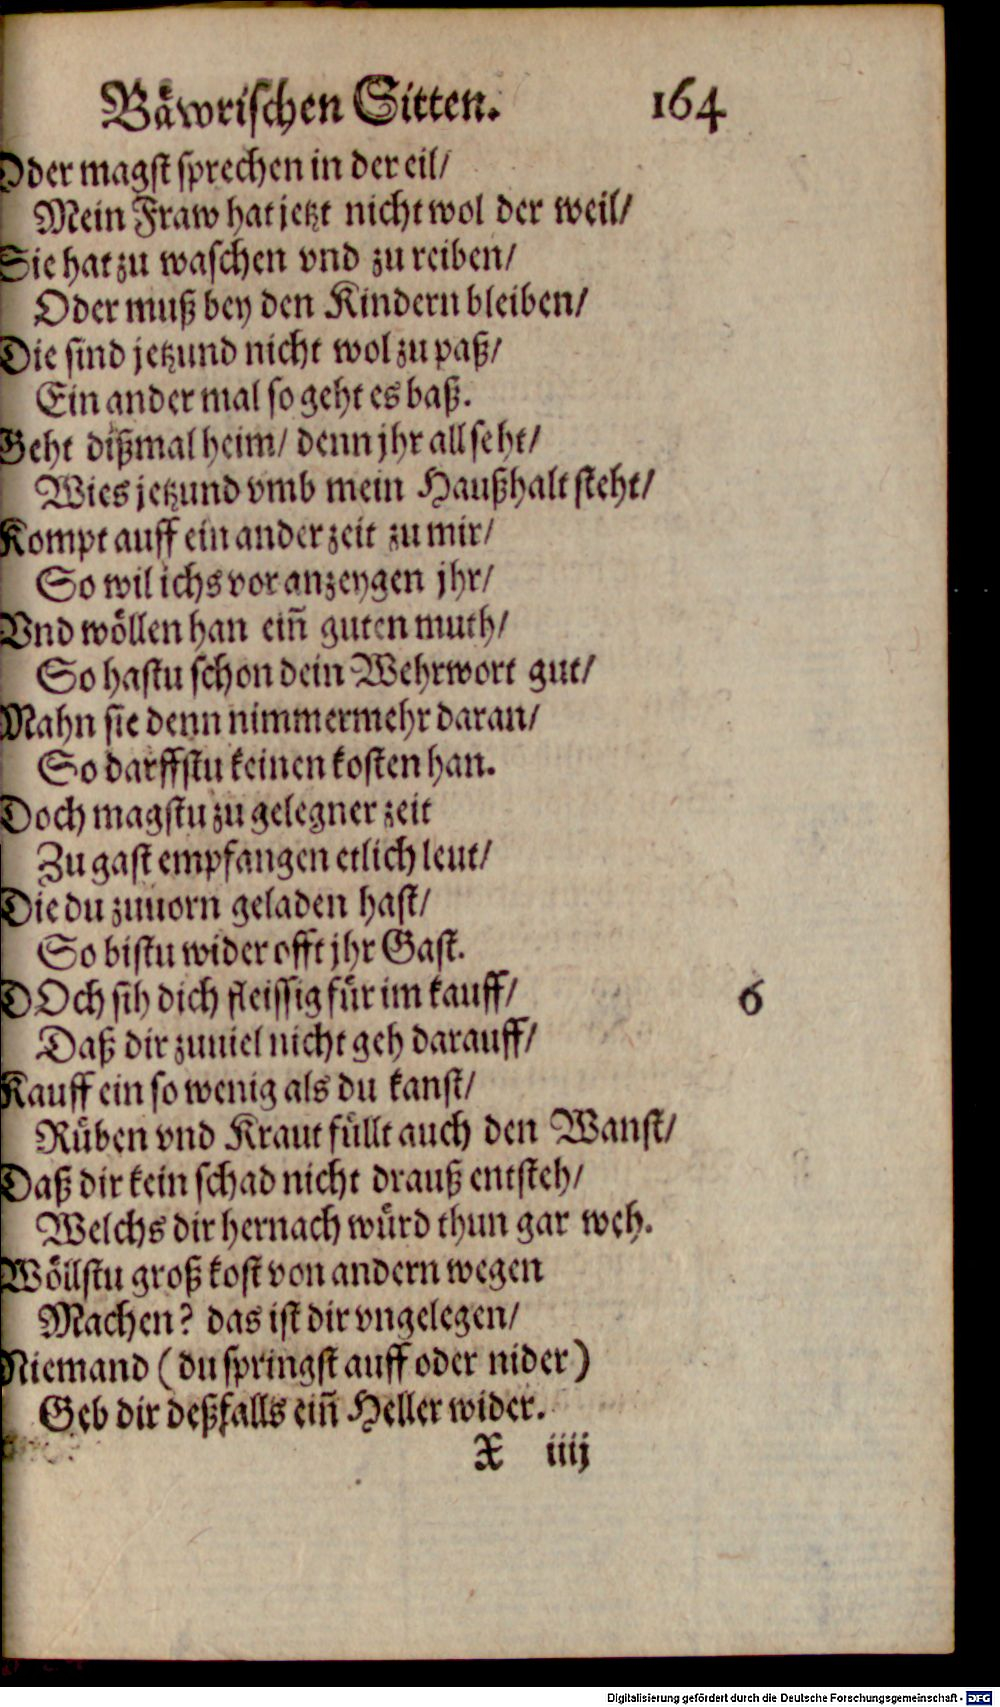 Bäwrischen Sitten. 164
Oder magst sprechen in der eil/
Mein Fraw hat jetzt nicht wol der weil/
Sie hat zu waschen vnd zu reiben/
Oder muß bey den Kindern bleiben/
Die sind jetzund nicht wol zu paß/
Ein ander mal so geht es baß.
Geht dißmal heim/ denn jhr all seht/
Wies jetzund vmb mein Haußhalt steht/
Kompt auff ein ander zeit zu mir/
So wil ichs vor anzeygen jhr/
Vnd wöllen han ein̄ guten muth/
So hastu schon dein Wehrwort gut/
Mahn sie denn nimmermehr daran/
So darffstu keinen kosten han.
Doch magstu zu gelegner zeit
Zu gast empfangen etlich leut/
Die du zuuorn geladen hast/
So bistu wider offt jhr Gast.
DOch sih dich fleissig für im kauff/ 6
Daß dir zuuiel nicht geh darauff/
Kauff ein so wenig als du kanst/
Rüben vnd Kraut füllt auch den Wanst/
Daß dir kein schad nicht drauß entsteh/
Welchs dir hernach würd thun gar weh.
Wöllstu groß kost von andern wegen
Machen? das ist dir vngelegen/
Niemand (du springst auff oder nider)
Geb dir deßfalls ein̄ Heller wider.
X iiij
Digitalisierung gefördert durch die Deutsche Forschungsgemeinschaft - DFG